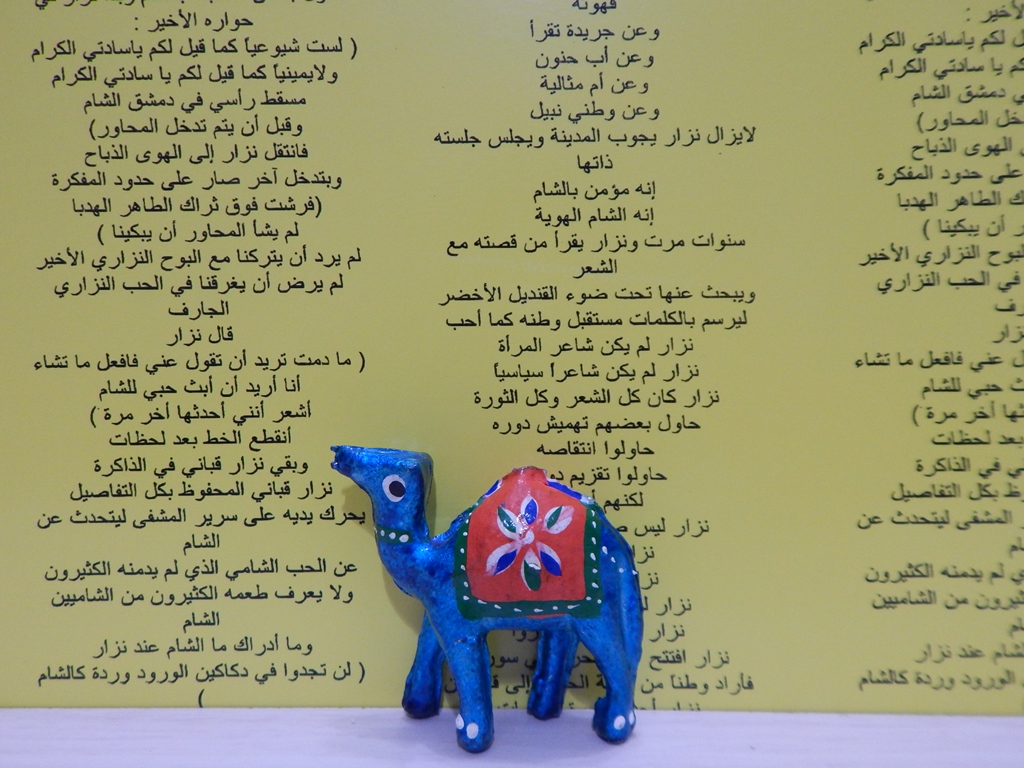 حواره الأخير :
( لست شيوعياً كما قيل لكم ياسادتي الكرام
ولايمينياً كما قيل لكم يا سادتي الكرام
مسقط رأسي في دمشق الشام
وقبل أن يتم تدخل المحاور)
فانتقل نزار إلى الهوى الذباح
وبتدخل آخر صار على حدود المفكرة
(فرشت فوق ثراك الطاهر الهدبا
لم يشأ المحاور أن يبكينا )
لم يرد أن يتركنا مع البوح النزاري الأخير
لم يرض أن يغرقنا في الحب النزاري
الجارف
قال نزار
( ما دمت تريد أن تقول عني فافعل ما تشاء
أنا أريد أن أبث حبي للشام
أشعر أنني أحدثها أخر مرة )
أنقطع الخط بعد لحظات
وبقي نزار قباني في الذاكرة
نزار قباني المحفوظ بكل التفاصيل
يحرك يديه على سرير المشفى ليتحدث عن
الشام
عن الحب الشامي الذي لم يدمنه الكثيرون
ولا يعرف طعمه الكثيرون من الشاميين
الشام
وما أدراك ما الشام عند نزار
( لن تجدوا في دكاكين الورود وردة كالشام
)
قهوته
وعن جريدة تقرأ
وعن أب حنون
وعن أم مثالية
وعن وطني نبيل
لايزال نزار يجوب المدينة ويجلس جلسته
ذاتها
إنه مؤمن بالشام
إنه الشام الهوية
سنوات مرت ونزار يقرأ من قصته مع
الشعر
ويبحث عنها تحت ضوء القنديل الأخضر
ليرسم بالكلمات مستقبل وطنه كما أحب
نزار لم يكن شاعر المرأة
نزار لم يكن شاعراً سياسياً
نزار كان كل الشعر وكل الثورة
حاول بعضهم تهميش دوره
حاولوا انتقاصه
حاولوا تقزيم
لكنهم
نزار ليس
نزار
نزار
نزار
نزار
نزار افتتح
فأراد وطناً من
الأخير :
لكم ياسادتي الكرام
لكم يا سادتي الكرام
في دمشق الشام
المحاور)
الهوى الذباح
على حدود المفكرة
الطاهر الهدبا
أن يبكينا )
البوح النزاري الأخير
في الحب النزاري
عني فافعل ما تشاء
حبي للشام
مرة )
بعد لحظات
في الذاكرة
بكل التفاصيل
المشفى ليتحدث عن
لم يدمنه الكثيرون
من الشاميين
الشام عند نزار
الورود وردة كالشام